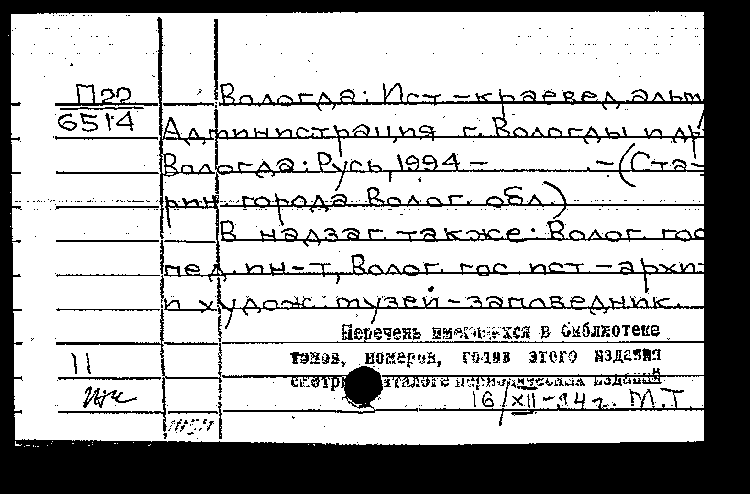 П22 Вологда: Ист-краевед. альм
6514 Администрация г. Вологды и др
Вологда: Русь, 1994 - . -(Ста-
рин. города Волог. обл.)
В надзаг. также: Волог. гос
пед. ин-т, Волог. гос. ист-архи-
и худож. музей-заповедник.
Перечень имеющихся в библиотеке
томов, номеров, годов этого издания
смотри каталоге периодических изданий
11
16/XII-94г. М.Т